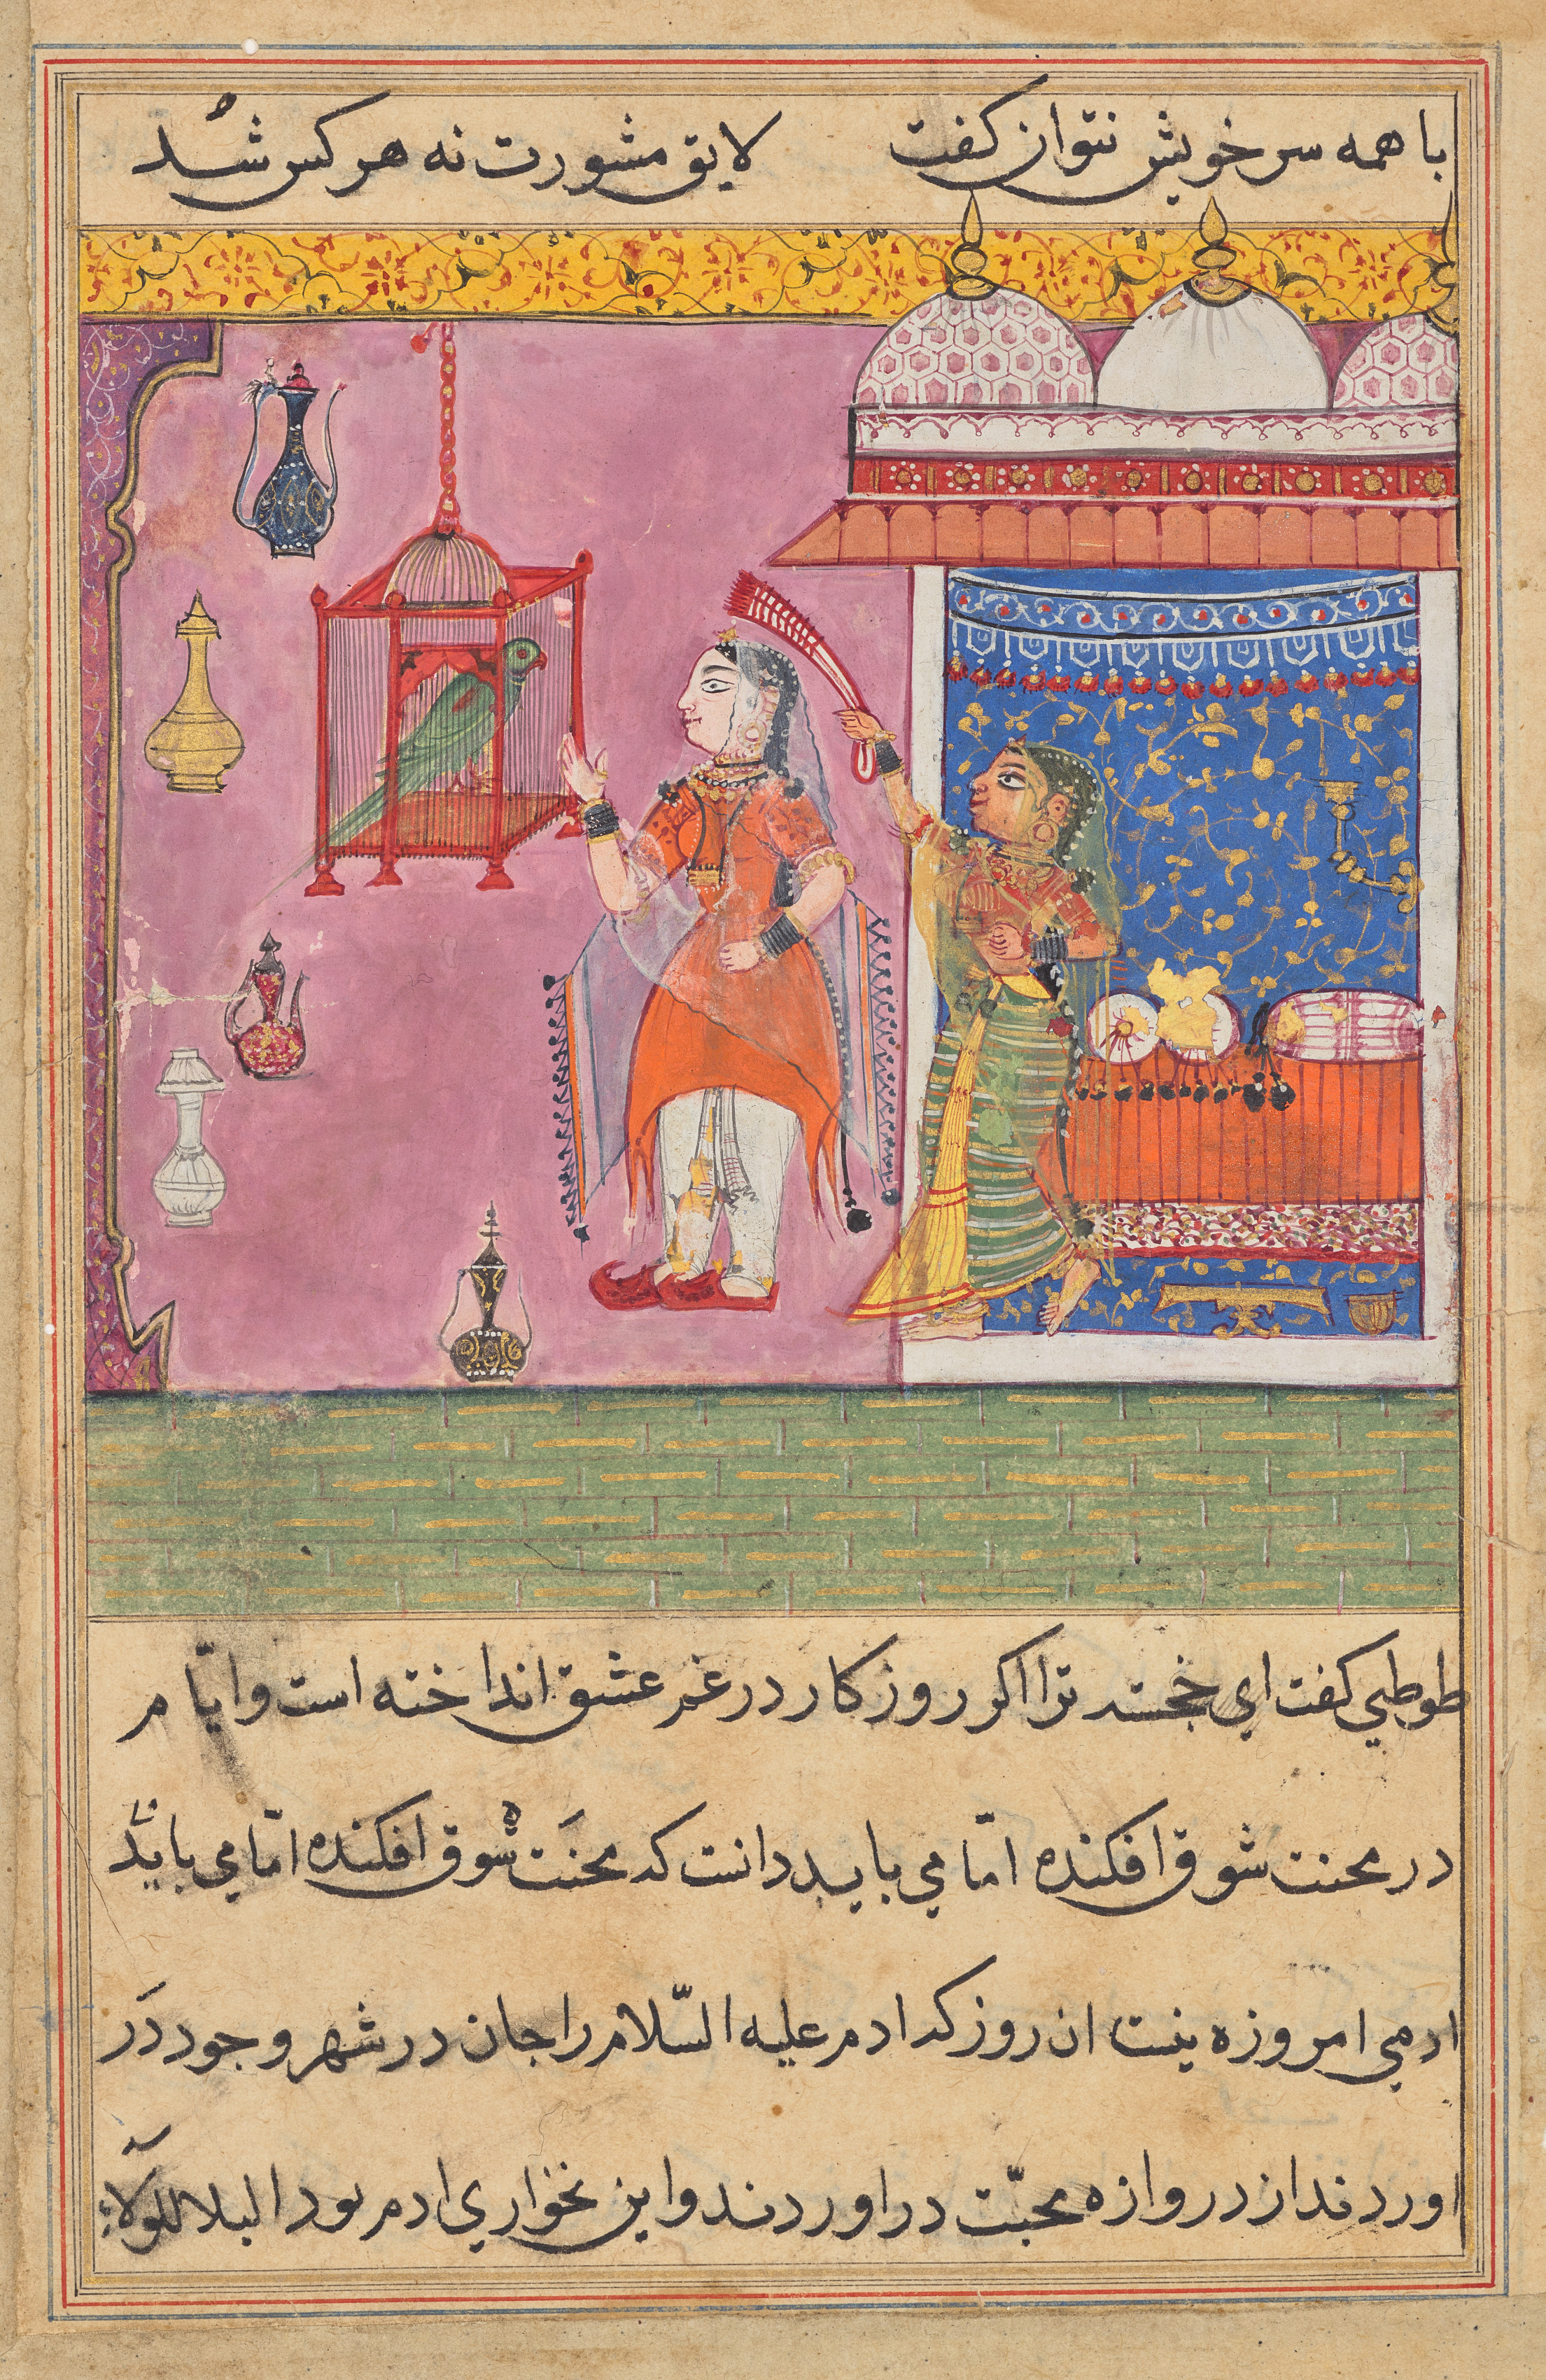 با همه سر خویش نتوان کفت لایق مشورت نه هر کس شد
طوطی کفت ای خجسته ترا اکر روزکار در غم عشق انداخته است و ایّام
در محنت شوق افکنده امّا می باید دانست که محنَت شوق افکنده امّا می بایَد
ادمی امروزه ینست ان روز که ادم علیه السّلام را جان در شهر وجود دَر
اوردند از دروازه محبّت در اوردند و این نخواری ادم بود البلا للولاء